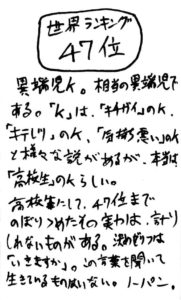 世界ランキング
47位
異端児K。相当の異端児で
ある。「K」は、「キチガイ」のK、
「キテレツ」のK、「気持ち悪い」のK
と様々な説があるが、本当は
「高校生」のKらしい。
高校生にして、47位まで
のぼりつめたその実力は、計り
しれないものがある。決めゼリフは
「いきますか」。この言葉を聞いて
生きているものはいない。ノーパン。